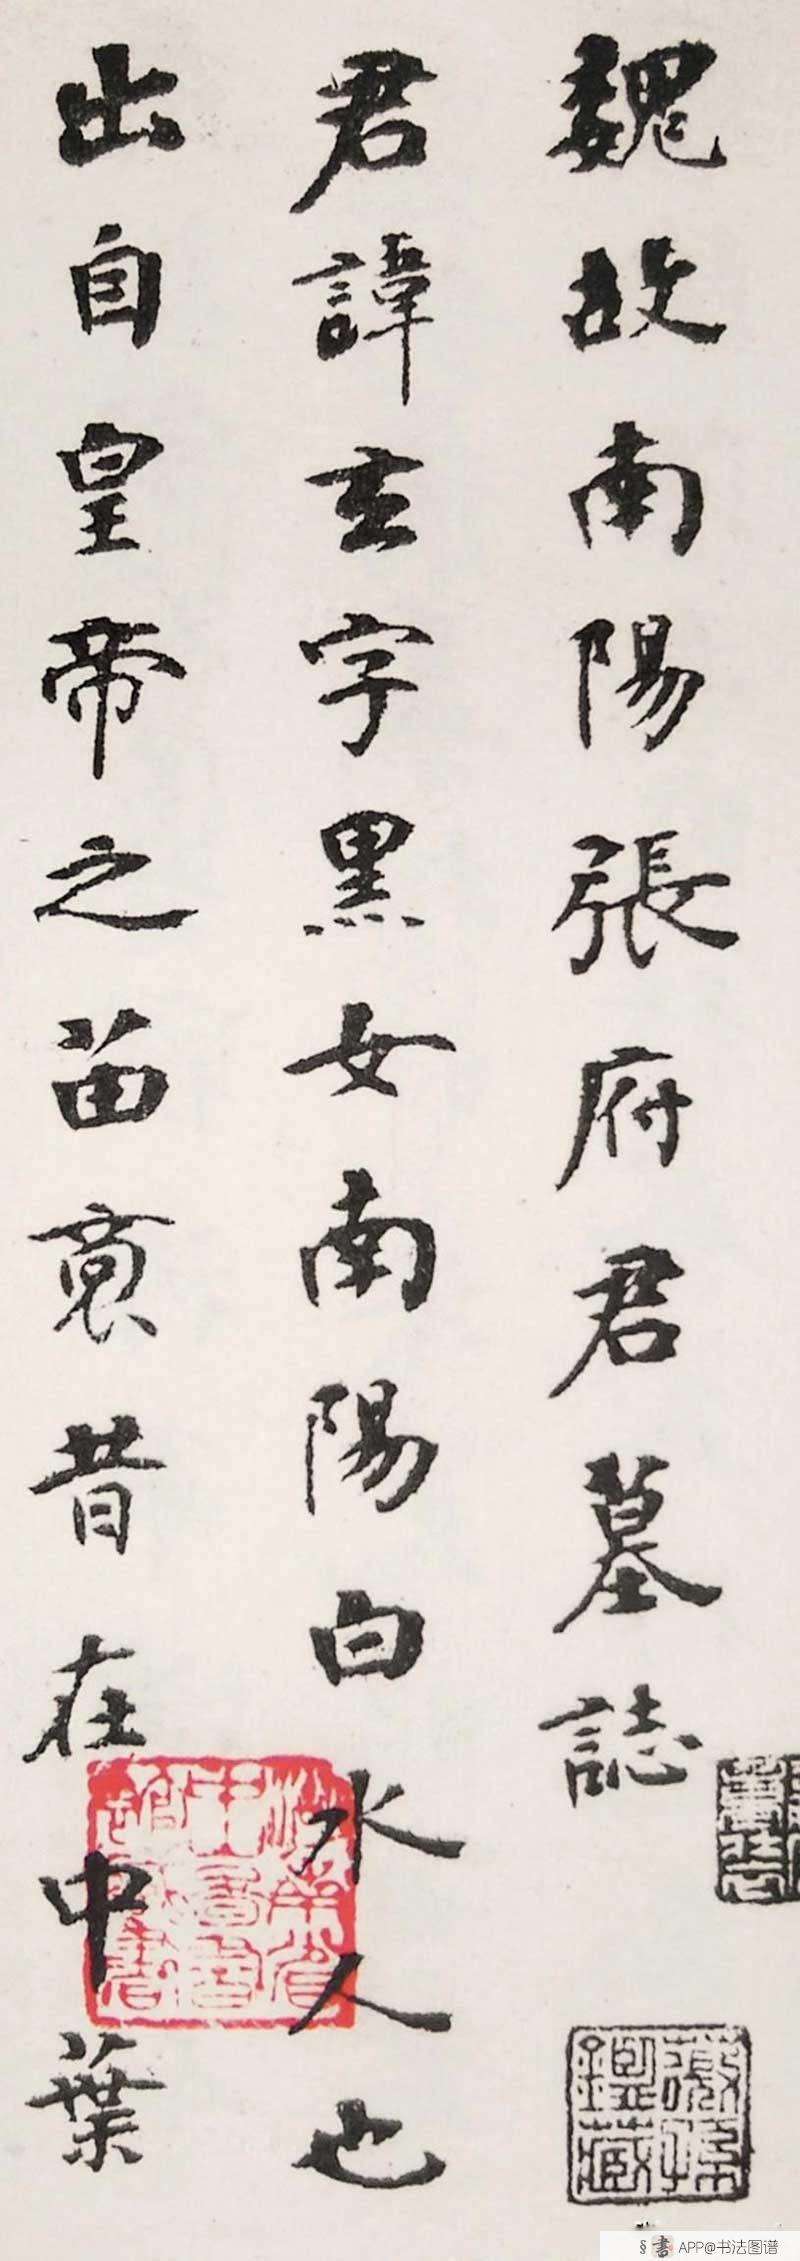 魏故南陽張府君墓誌
君諱玄字黑女南陽白水人也
出自皇帝之苗裔昔在中葉
書 APP@书法图谱